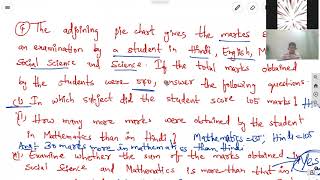 ④ The adjoining pie chart gives the markes
an examination by a student in Hindi, English, M
Social Science and Science. If the total marks obtained
by the students were 540, answer the following questions.
(i) In which subject did the student score 105 marks?
(ii) How many more marks were obtained by the student
in Mathematics than in Hindi? Mathematics=135, Hindi=105
Ans: 30 marks more in mathematics than Hindi
Examine whether the sum of the marks obtained
Social Science and Mathematics is more than that in
Yes